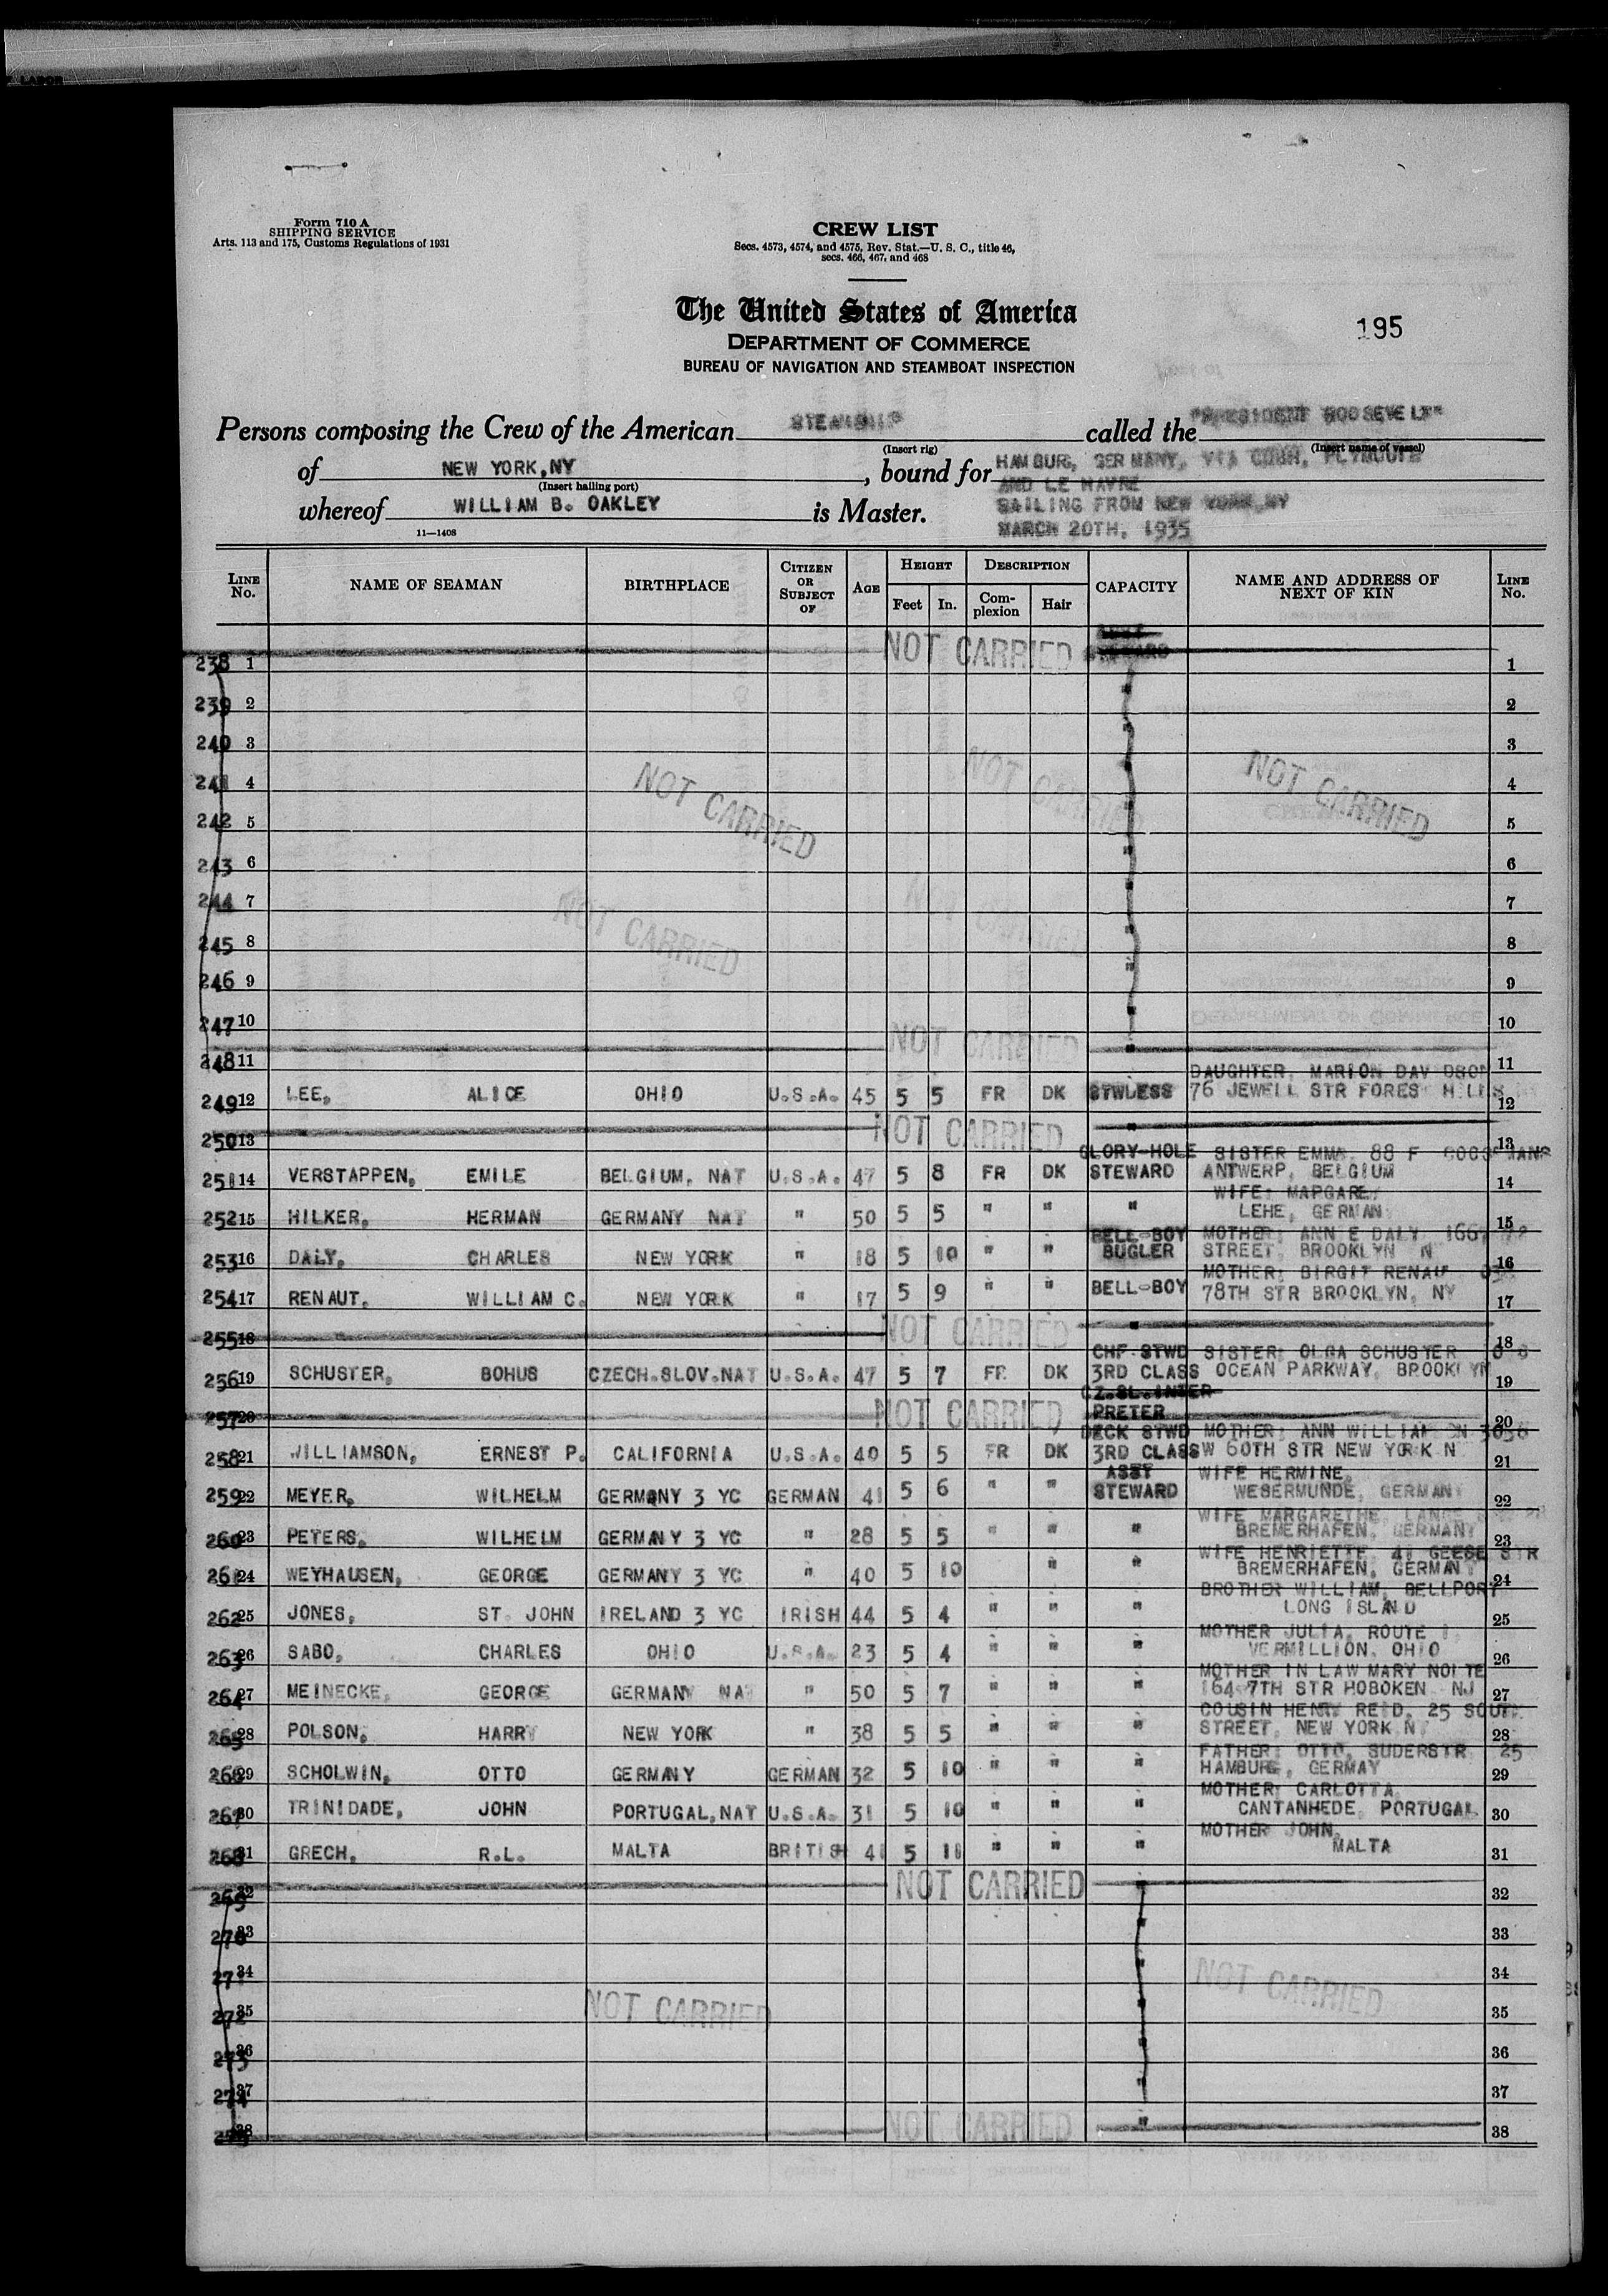 Form 710 A
SHIPPING SERVICE
Arts. 113 and 175, Customs Regulations of 1931
CREW LIST
Secs. 4573, 4574, and 4575, Rev. Stat.—U. S. C., title 46,
secs. 466, 467, and 468
The United States of America
DEPARTMENT OF COMMERCE
BUREAU OF NAVIGATION AND STEAMBOAT INSPECTION
195
Persons composing the Crew of the American STEAMSHIP called the "PRESIDENT ROOSEVELT"
(Insert rig) (Insert name of vessel)
of NEW YORK,NY , bound for HAMBURG, GERMANY, VIA COBH, PLYMOUTH
(Insert hailing port) AND LE HAVRE
whereof WILLIAM B. OAKLEY is Master. SAILING FROM NEW YORK,NY
11—1408 MARCH 20TH, 1935
LINE No. NAME OF SEAMAN BIRTHPLACE CITIZEN OR SUBJECT OF AGE HEIGHT Feet In. DESCRIPTION Complexion Hair CAPACITY NAME AND ADDRESS OF NEXT OF KIN LINE No.
238 1 NOT CARRIED 1
239 2 " 2
240 3 " 3
241 4 NOT CARRIED NOT CARRIED " NOT CARRIED 4
242 5 " 5
243 6 " 6
244 7 NOT CARRIED NOT CARRIED " 7
245 8 " 8
246 9 " 9
247 10 " 10
248 11 NOT CARRIED " 11
DAUGHTER, MARION
249 12 LEE, ALICE OHIO U.S.A. 45 5 5 FR DK STWDESS 76 JEWELL STR FOREST HILLS 12
250 13 NOT CARRIED " 13
GLORY-HOLE SISTER EMMA, 88 F
251 14 VERSTAPPEN, EMILE BELGIUM, NAT U.S.A. 47 5 8 FR DK STEWARD ANTWERP, BELGIUM 14
WIFE: MARGARET
252 15 HILKER, HERMAN GERMANY NAT " 50 5 5 " " " LEHE, GERMAN 15
BELL-BOY MOTHER; ANN E DALY
253 16 DALY, CHARLES NEW YORK " 18 5 10 " " BUGLER STREET, BROOKLYN N 16
MOTHER; BIRGIT RENAU
254 17 RENAUT, WILLIAM C. NEW YORK " 17 5 9 " " BELL-BOY 78TH STR BROOKLYN, NY 17
255 18 NOT CARRIED " 18
CHF STWD SISTER; OLGA SCHUSTER
256 19 SCHUSTER, BOHUS CZECH.SLOV.NAT U.S.A. 47 5 7 FR DK 3RD CLASS OCEAN PARKWAY, BROOKLYN 19
CZ.SL.INTER
257 20 NOT CARRIED PRETER 20
DECK STWD MOTHER; ANN WILLIAMSON
258 21 WILLIAMSON, ERNEST P. CALIFORNIA U.S.A. 40 5 5 FR DK 3RD CLASS W 60TH STR NEW YORK N 21
ASST WIFE HERMINE,
259 22 MEYER, WILHELM GERMANY 3 YC GERMAN 41 5 6 " " STEWARD WESERMUNDE, GERMANY 22
WIFE MARGARETHE, LANGE
260 23 PETERS, WILHELM GERMANY 3 YC " 28 5 5 " " " BREMERHAFEN, GERMANY 23
WIFE HENRIETTE, 41 GEESE STR
261 24 WEYHAUSEN, GEORGE GERMANY 3 YC " 40 5 10 " " BREMERHAFEN, GERMANY 24
BROTHER WILLIAM, BELLPORT
262 25 JONES, ST. JOHN IRELAND 3 YC IRISH 44 5 4 " " " LONG ISLAND 25
MOTHER JULIA, ROUTE 1,
263 26 SABO, CHARLES OHIO U.S.A. 23 5 4 " " " VERMILLION, OHIO 26
MOTHER IN LAW MARY NOLTE
264 27 MEINECKE, GEORGE GERMANY NAT " 50 5 7 " " " 164 7TH STR HOBOKEN NJ 27
COUSIN HENRY REID, 25 SOUTH
265 28 POLSON, HARRY NEW YORK " 38 5 5 " " " STREET, NEW YORK NY 28
FATHER; OTTO, SUDERSTR 25
266 29 SCHOLWIN, OTTO GERMANY GERMAN 32 5 10 " " " HAMBURG, GERMAY 29
MOTHER; CARLOTTA,
267 30 TRINIDADE, JOHN PORTUGAL,NAT U.S.A. 31 5 10 " " " CANTANHEDE, PORTUGAL 30
MOTHER JOHN,
268 31 GRECH, R.L. MALTA BRITISH 41 5 11 " " " MALTA 31
269 32 NOT CARRIED " 32
270 33 " 33
271 34 " NOT CARRIED 34
272 35 NOT CARRIED " 35
273 36 " 36
274 37 " 37
275 38 NOT CARRIED " 38